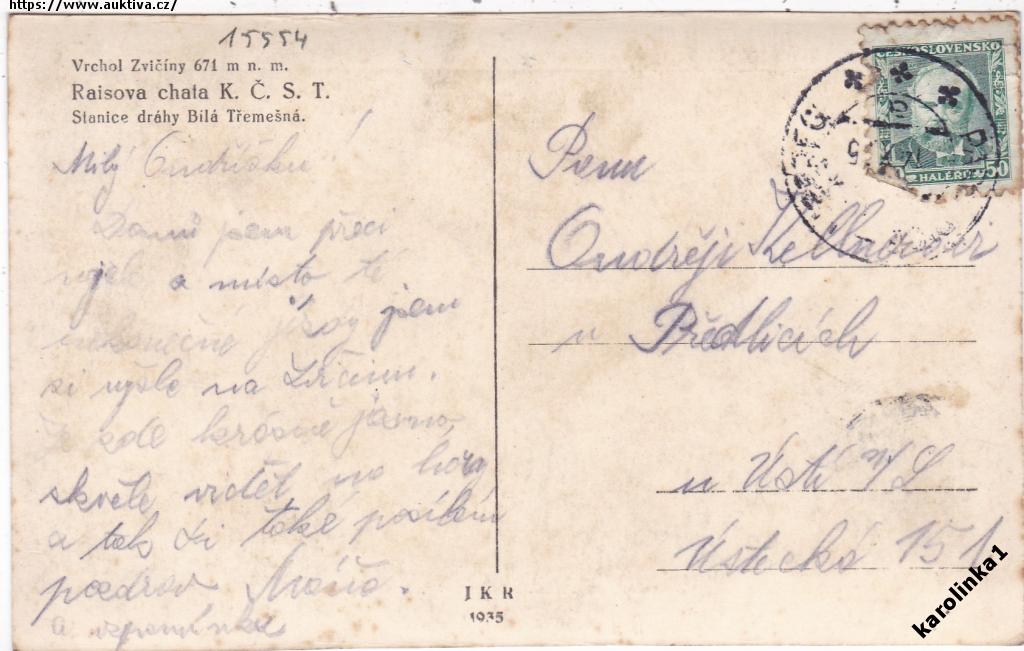 https://www.auktiva.cz/
15954
Vrchol Zvičíny 671 m n. m.
Raisova chata K. Č. S. T.
Stanice dráhy Bílá Třemešná.
Milý Ondříšku
Domů jsem přeci
a místo té
nekonečné jsem
si vyšla na Zvičinu.
Je zde krásně jasno,
skvěle vidět na hory
a tak Ti také posílám
pozdrav Máňa.
a vzpomínku
J K R
1935
ČESKOSLOVENSKO
50
HALÉŘŮ
Panu
Ondřeji
v Předlicích
u Ústí n/L
Ústecká 151
karolinka1